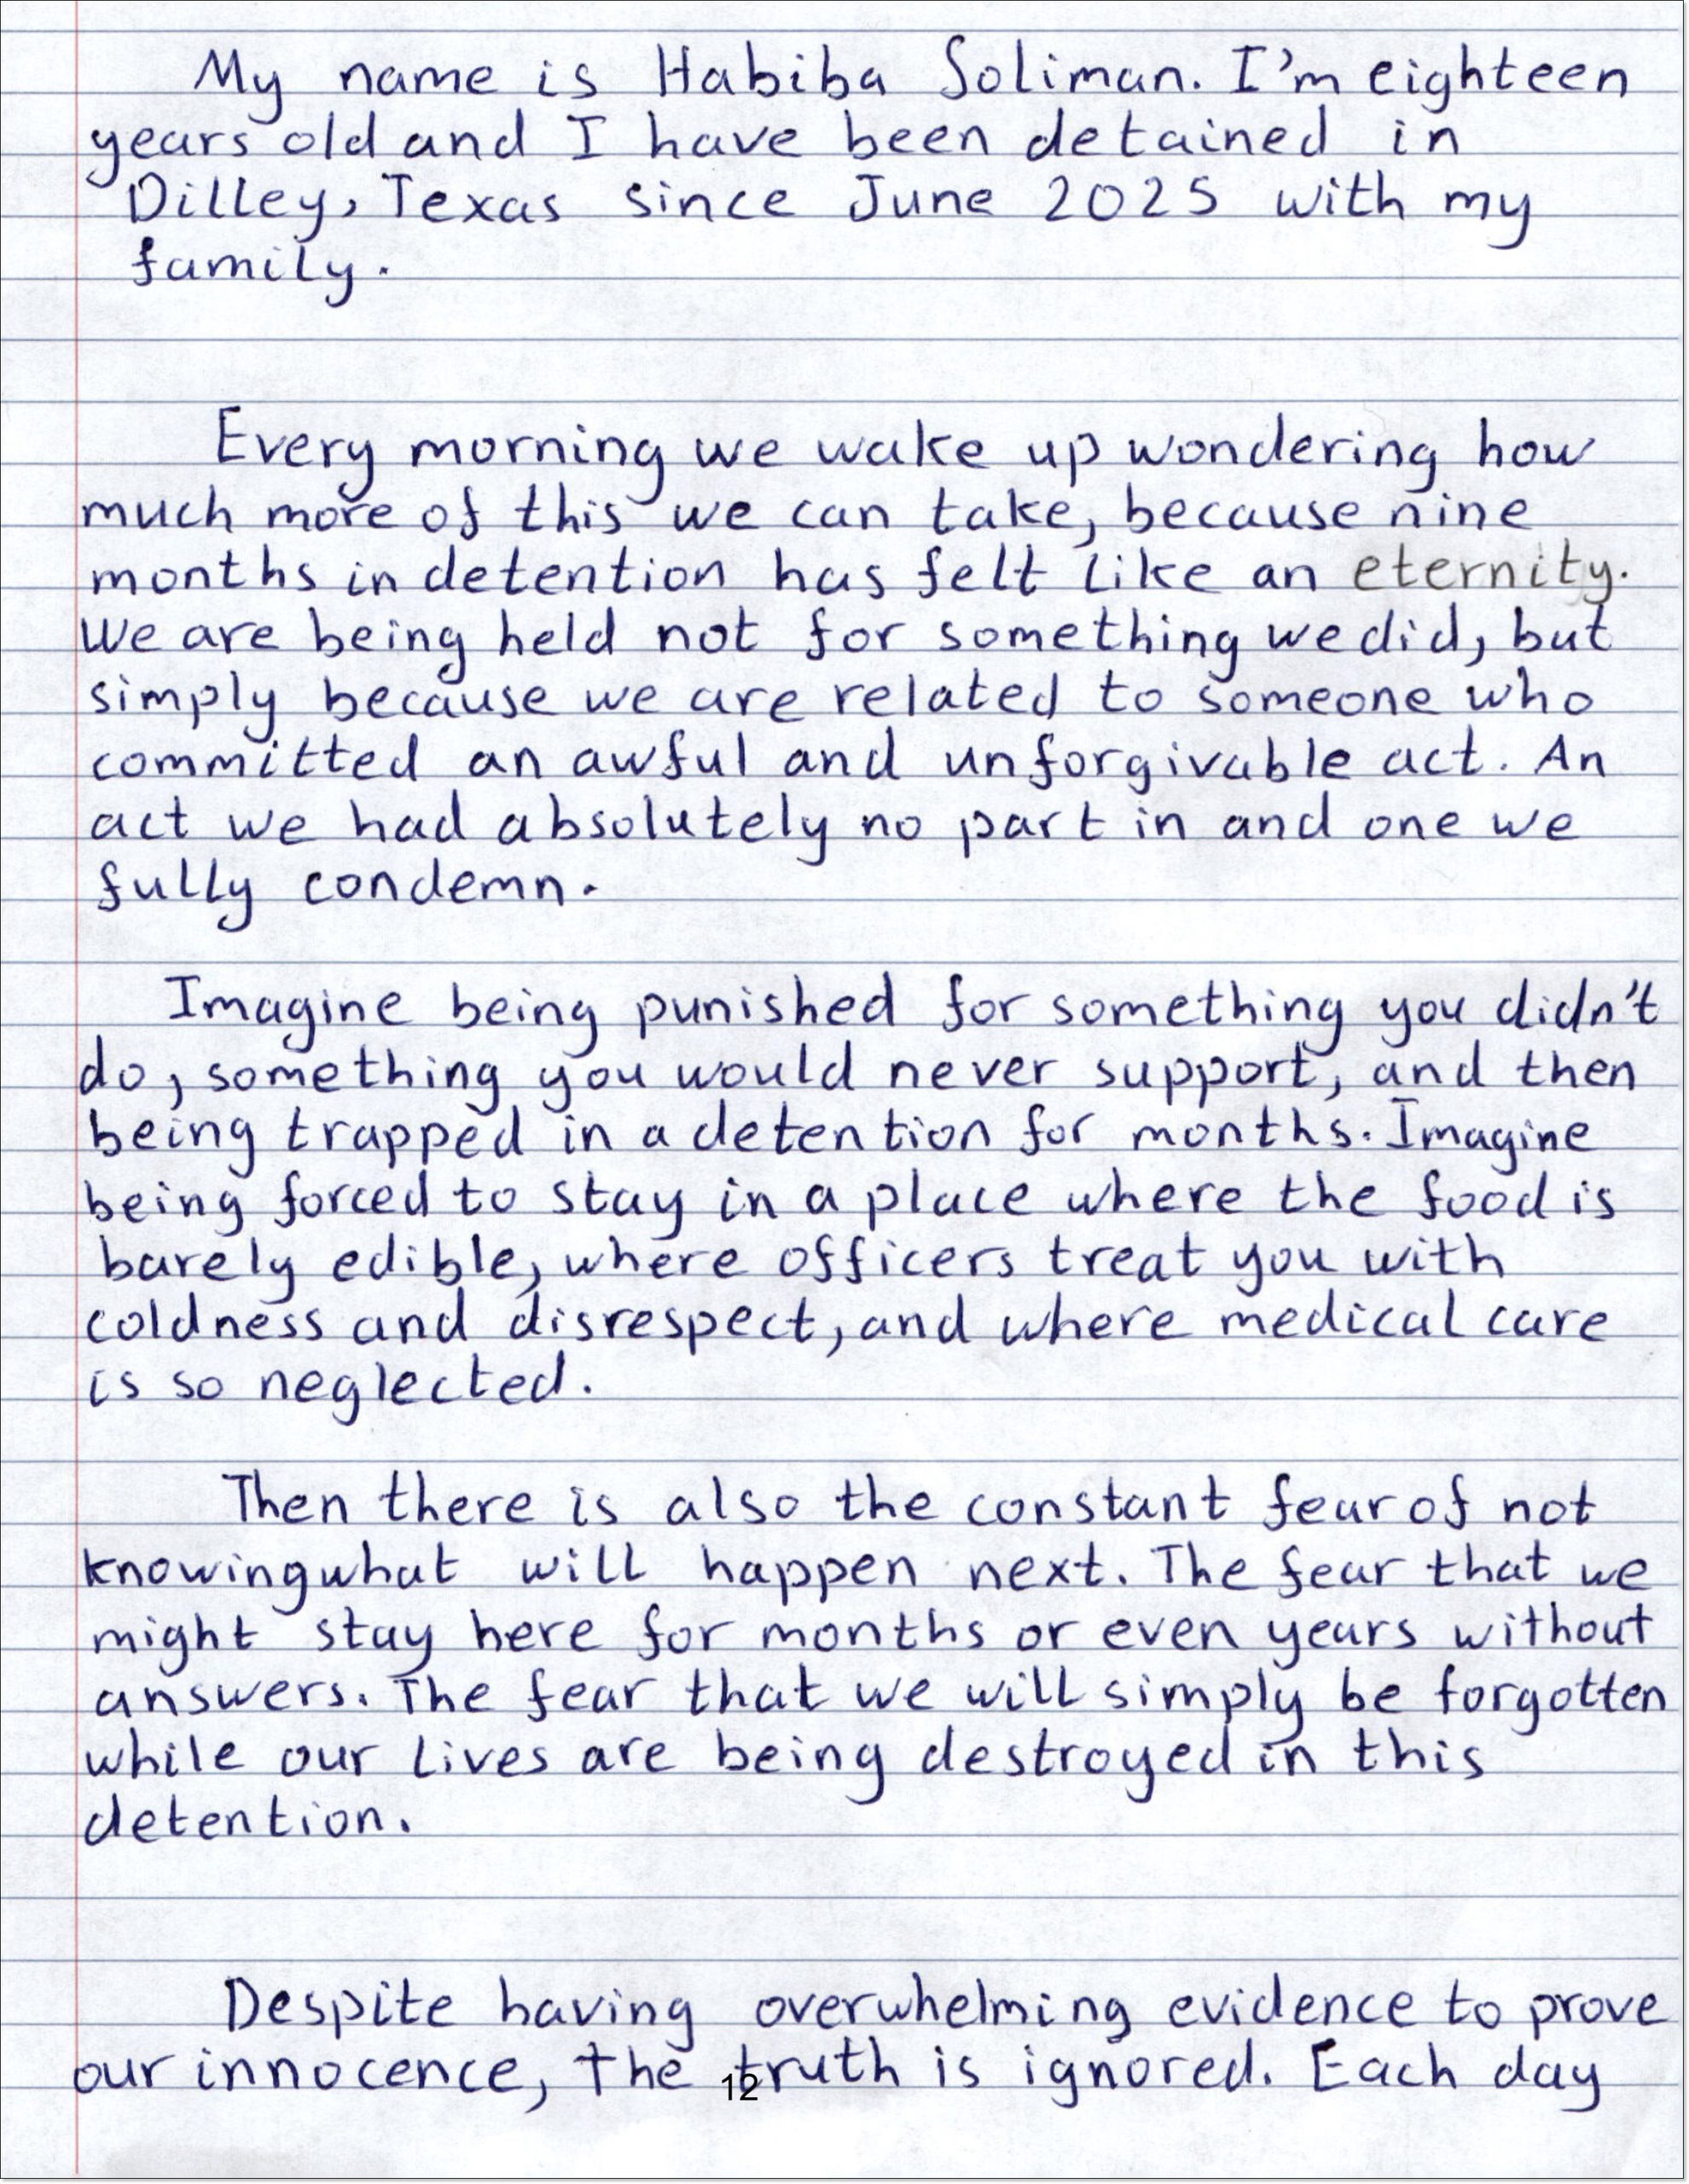 My name is Habiba Soliman. I'm eighteen
years old and I have been detained in
Dilley, Texas since June 2025 with my
family.
Every morning we wake up wondering how
much more of this we can take, because nine
months in detention has felt like an eternity.
We are being held not for something we did, but
simply because we are related to someone who
committed an awful and unforgivable act. An
act we had absolutely no part in and one we
fully condemn.
Imagine being punished for something you didn't
do, something you would never support, and then
being trapped in a detention for months. Imagine
being forced to stay in a place where the food is
barely edible, where officers treat you with
coldness and disrespect, and where medical care
is so neglected.
Then there is also the constant fear of not
knowing what will happen next. The fear that we
might stay here for months or even years without
answers. The fear that we will simply be forgotten
while our lives are being destroyed in this
detention.
Despite having overwhelming evidence to prove
our innocence, the truth is ignored. Each day
12